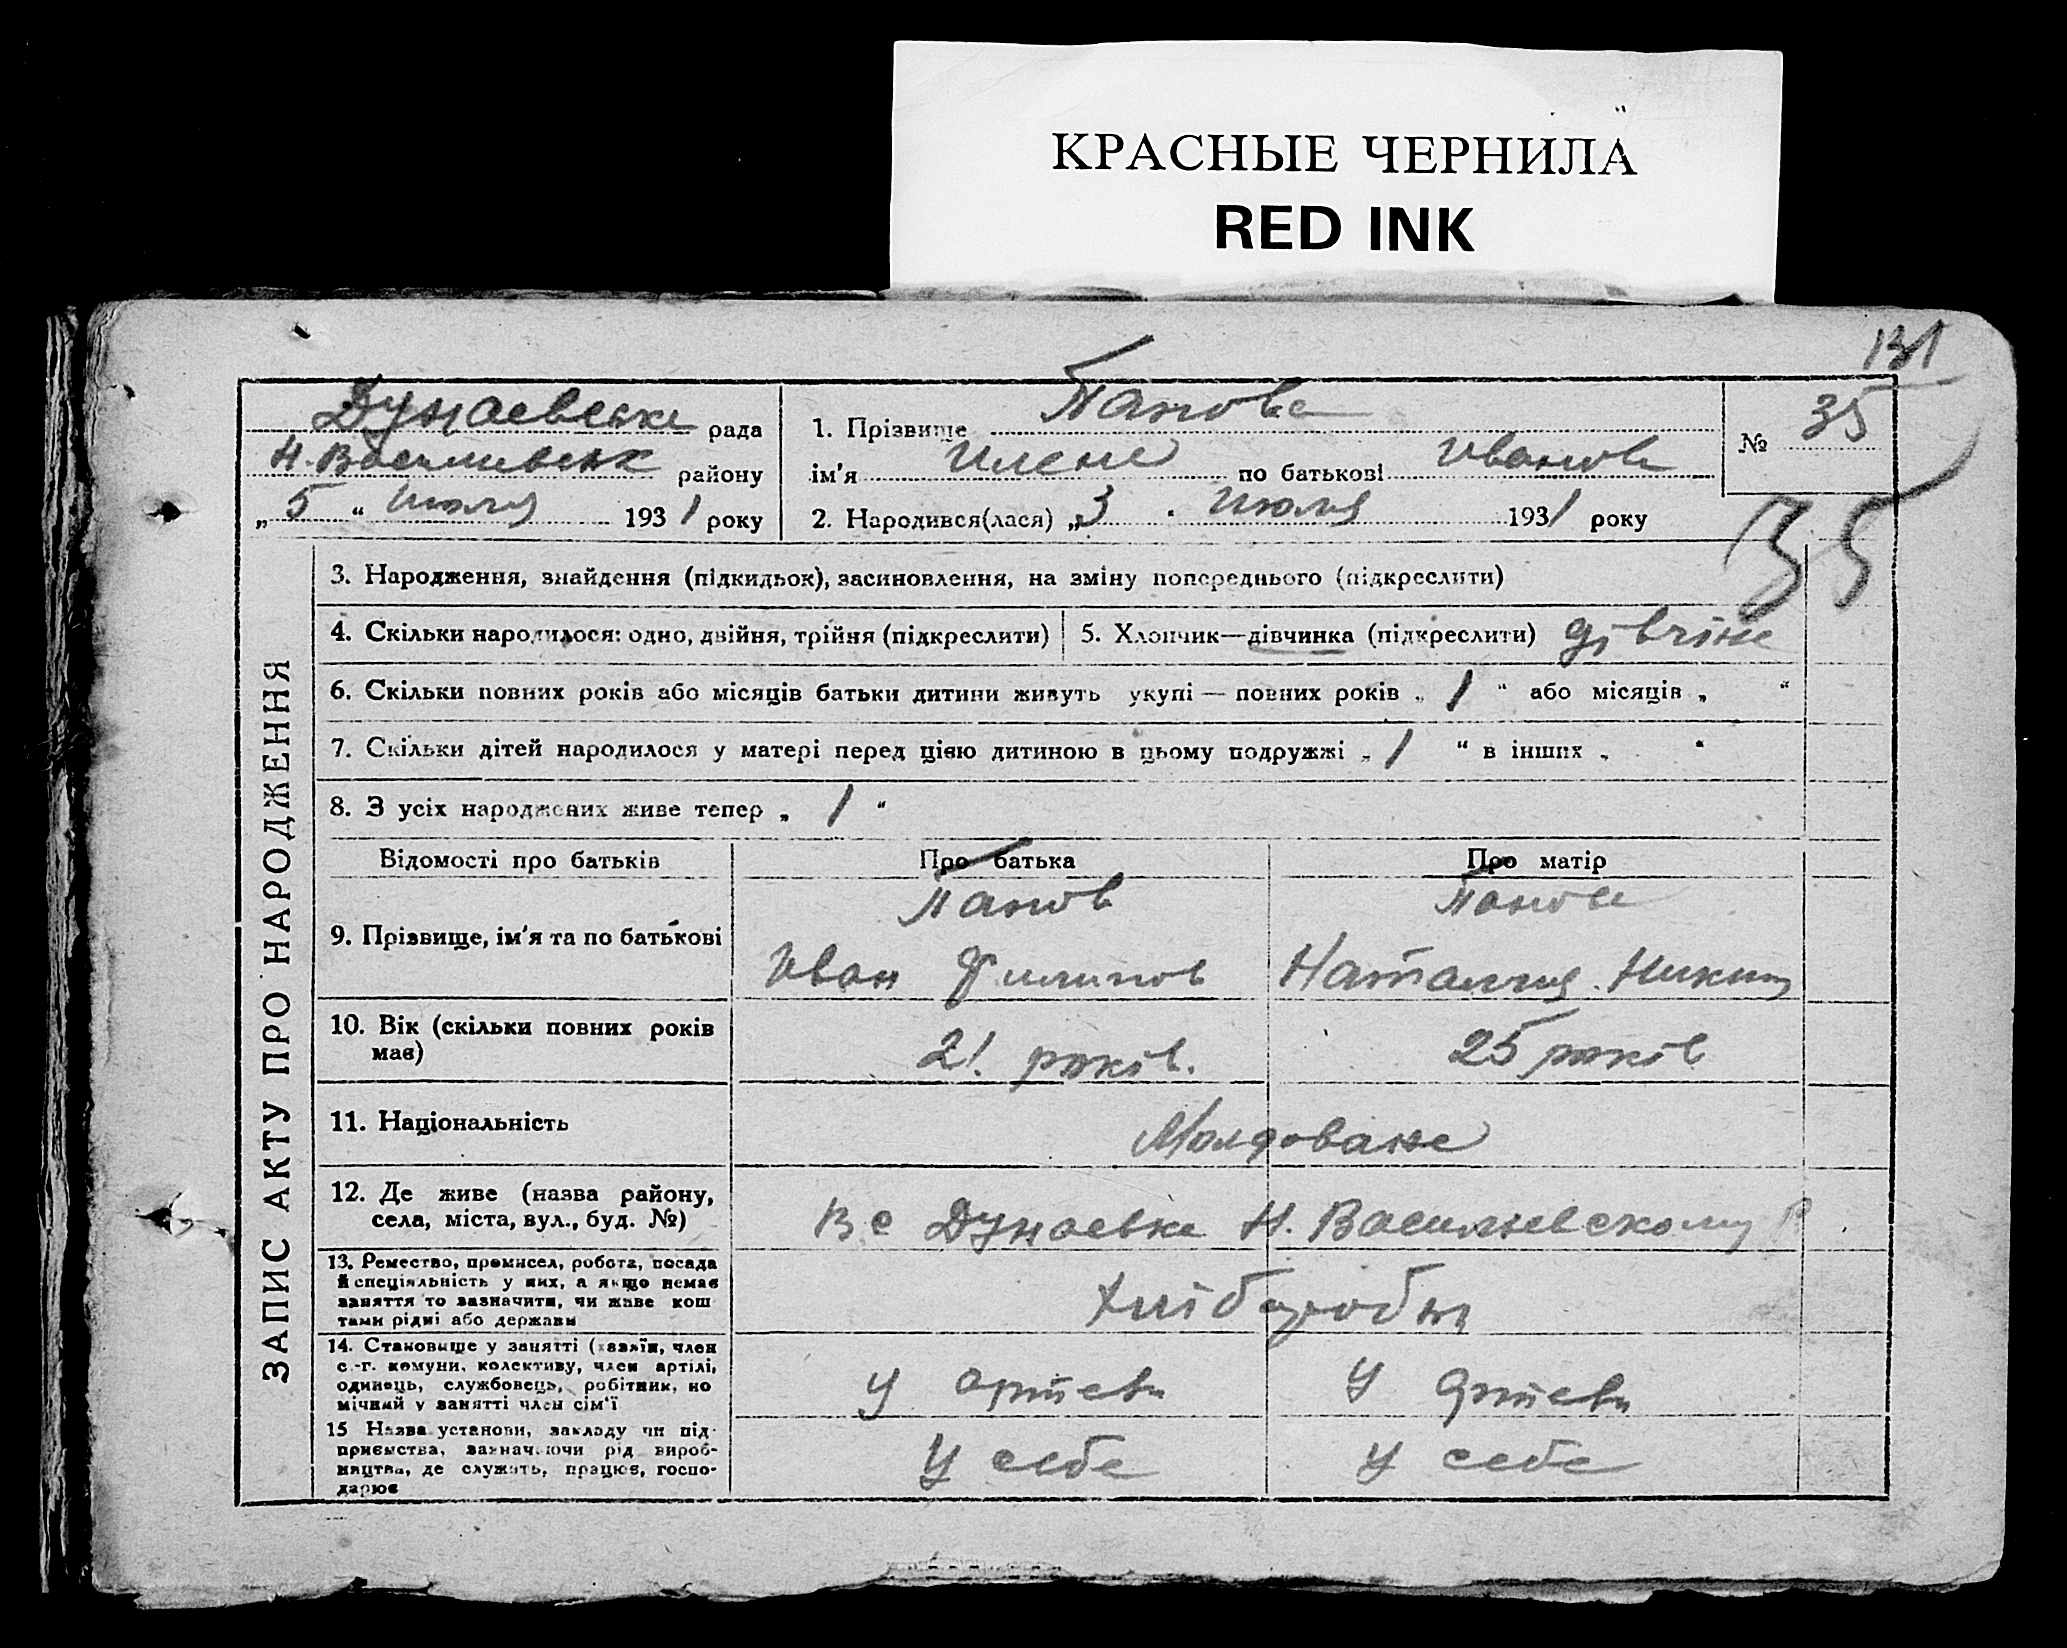 КРАСНЫЕ ЧЕРНИЛА
RED INK
131
Дунаевське рада
Н. Васильевськ району
„ 5 “ Июля 1931 року
1. Прізвище Панова
ім'я Илена по батькові Иванов
2. Народився(лася) „3 Июля 1931 року
№ 35
35
ЗАПИС АКТУ ПРО НАРОДЖЕННЯ
3. Народження, знайдення (підкидьок), засиновлення, на зміну попереднього (підкреслити)
4. Скільки народилося: одно, двійня, трійня (підкреслити)
5. Хлопчик—дівчинка (підкреслити) дівчіна
6. Скільки повних років або місяців батьки дитини живуть укупі — повних років „ 1 “ або місяців „ “
7. Скільки дітей народилося у матері перед цією дитиною в цьому подружжі „ 1 “ в інших „ “
8. З усіх народжених живе тепер „ 1 “
Відомості про батьків Про батька Про матір
9. Прізвище, ім'я та по батькові
Панов
Иван Филипов
Панова
Наталия Никит
10. Вік (скільки повних років має)
21. років.
25 років
11. Національність
Молдоване
12. Де живе (назва району,
села, міста, вул., буд. №)
В с Дунаевке Н. Васильевскому р
13. Ремество, промисел, робота, посада
й спеціяльність у них, а якщо немає
заняття то зазначити, чи живе кош
тами рідні або держави
Хліборобы
14. Становище у занятті (хазяїн, член
с.-г. комуни, колективу, член артілі,
одинець, службовець, робітник, по
мічний у занятті член сім'ї
У артеви У артеви
15 Назва установи, закладу чи під-
приємства, зазначаючи рід вироб-
ництва, де служить, працює, госпо-
дарює
У себе У себе